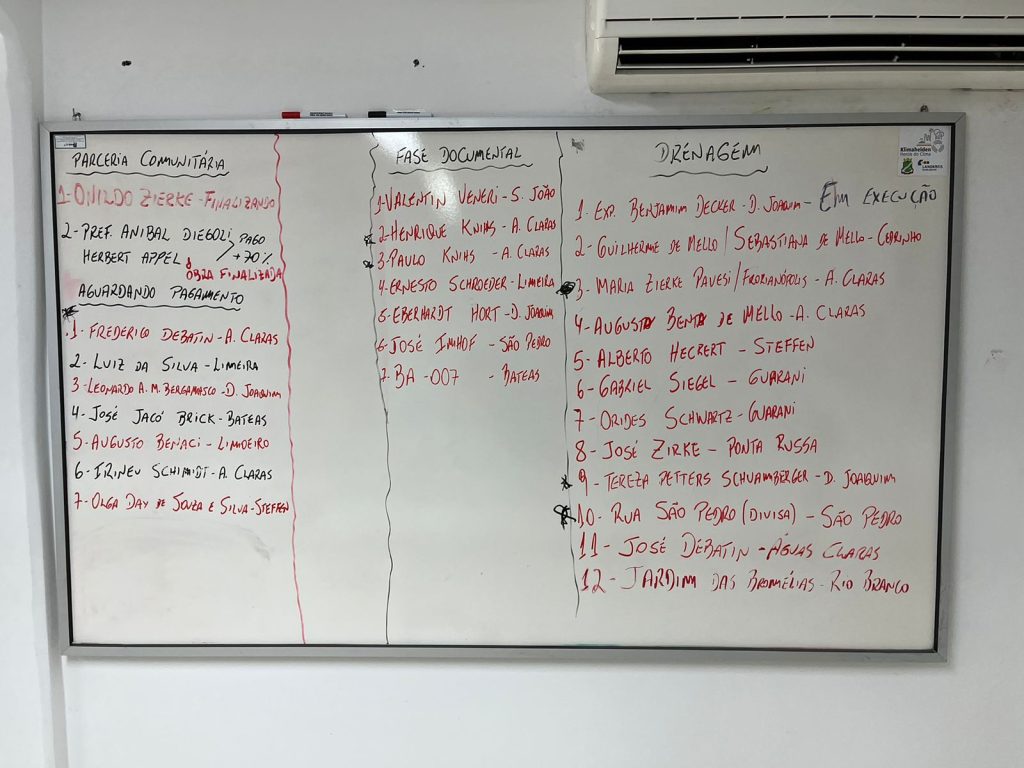 PARCERIA COMUNITÁRIA
1-ONILDO ZIERKE - FINALIZANDO
2-PREF. ANIBAL DIEGOLI
HERBERT APPEL
PAGO
+70%
ÓBRA FINALIZADA
AGUARDANDO PAGAMENTO
1- FREDERICO DEBATIN - A. CLARAS
2- LUIZ DA SILVA - LIMEIRA
3-LEONARDO A. M. BERGAMASCO - D. JOAQUIM
4- JOSÉ JACÓ BRICK - BATEAS
5- AUGUSTO BENACI - LIMOEIRO
6- IRINEU SCHIMIDT - A. CLARAS
7- OLGA DAY DE SOUZA E SILVA - STEFFEN
FASE DOCUMENTAL
1-VALENTIN VENERI - S. JOÃO
2-HENRIQUE KNIHS - A. CLARAS
3-PAULO KNIHS - A. CLARAS
4-ERNESTO SCHROEDER - LIMEIRA
5-EBERHARDT HORT - D. JOAQUIM
6-JOSÉ IMHOF - SÃO PEDRO
7-BA -007 - BATEAS
DRENAGEM
1. EXP. BENJAMIM DECKER - D. JOAQUIM - EM EXECUÇÃO
2- GUILHERME DE MELLO / SEBASTIANA DE MELLO - CEDRINHO
3- MARIA ZIERKE PAVESI / FLORIANÓPOLIS - A. CLARAS
4- AUGUSTA BENTA DE MELLO - A. CLARAS
5- ALBERTO HECRERT - STEFFEN
6- GABRIEL SIEGEL - GUARANI
7- ORIDES SCHWARTZ - GUARANI
8- JOSÉ ZIRKE - PONTA RUSSA
9- TEREZA PETTERS SCHUAMBERGER - D. JOAQUIM
10- RUA SÃO PEDRO (DIVISA) - SÃO PEDRO
11- JOSÉ DEBATIN - ÁGUAS CLARAS
12- JARDIM DAS BROMÉLIAS - RIO BRANCO
Klimahelden
Heróis do Clima